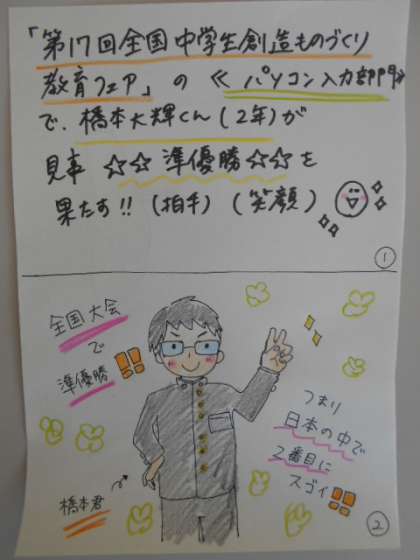 「第17回全国中学生創造ものづくり
教育フェア」の≪パソコン入力部門≫
で、橋本大輝くん(2年)が
見事 ☆☆準優勝☆☆を
果たす!!(拍手)(笑顔)
①
全国大会
で
準優勝!!
つまり
日本の中で
2番目に
スゴイ!!
橋本君
②